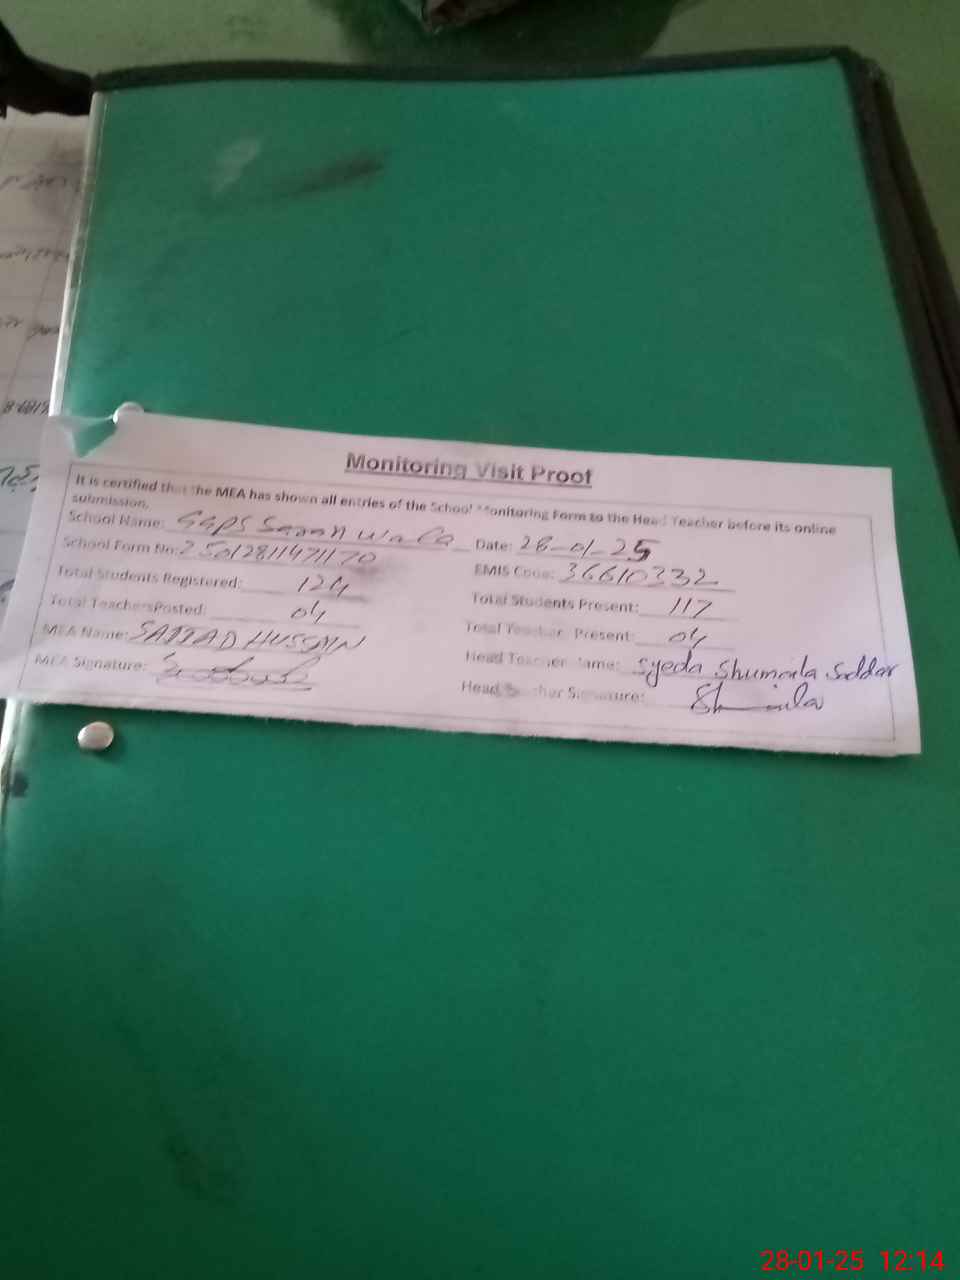 Monitoring Visit Proof
It is certified that the MEA has shown all entries of the School Monitoring Form to the Head Teacher before its online
submission.
School Name: GGPS Wala Date: 28-01-25
School Form No: 25012811471170 EMIS Code: 36610332
Total Students Registered: 124 Total Students Present: 117
Total Teachers Posted: 04 Total Teacher Present: 04
MEA Name: SAJJAD HUSSAIN Head Teacher Name: Syeda Shumaila Saddar
MEA Signature: Head Teacher Signature: Shumaila
28-01-25 12:14